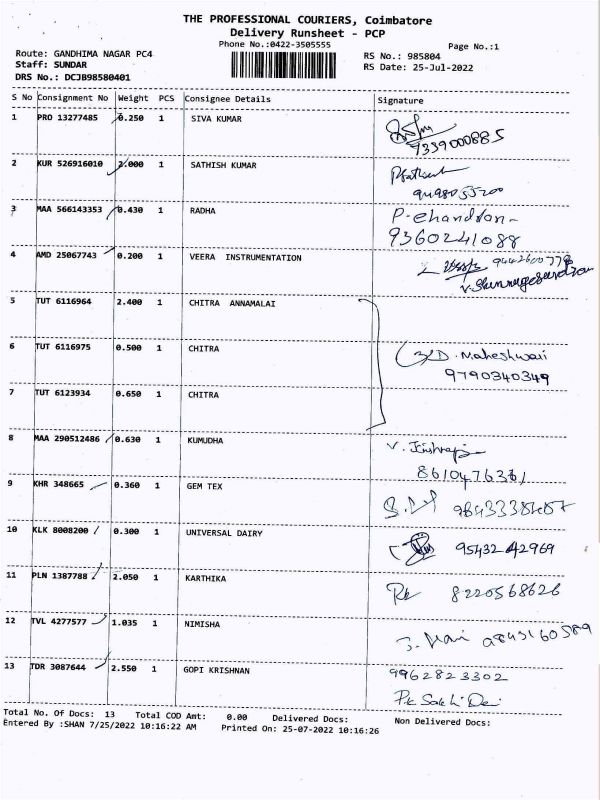 THE PROFESSIONAL COURIERS, Coimbatore
Delivery Runsheet - PCP
Phone No.:0422-3505555
Page No.:1
Route: GANDHIMA NAGAR PC4
Staff: SUNDAR
DRS No.: DCJB98580401
RS No.: 985804
RS Date: 25-Jul-2022
S No Consignment No Weight PCS Consignee Details Signature
1 PRO 13277485 0.250 1 SIVA KUMAR
9339000885
2 KUR 526916010 2.000 1 SATHISH KUMAR
3 MAA 566143353 0.430 1 RADHA P-chandran-
9360241088
4 AMD 25067743 0.200 1 VEERA INSTRUMENTATION 9442600778
5 TUT 6116964 2.400 1 CHITRA ANNAMALAI
6 TUT 6116975 0.500 1 CHITRA D. Maheshwari
9790340349
7 TUT 6123934 0.650 1 CHITRA
8 MAA 290512486 0.630 1 KUMUDHA
9 KHR 348665 0.360 1 GEM TEX
10 KLK 8008200 0.300 1 UNIVERSAL DAIRY 95432 42969
11 PLN 1387788 2.050 1 KARTHIKA 8220568626
12 TVL 4277577 1.035 1 NIMISHA
13 TDR 3087644 2.550 1 GOPI KRISHNAN 9962823302
Total No. Of Docs: 13 Total COD Amt: 0.00 Delivered Docs: Non Delivered Docs:
Entered By :SHAN 7/25/2022 10:16:22 AM Printed On: 25-07-2022 10:16:26